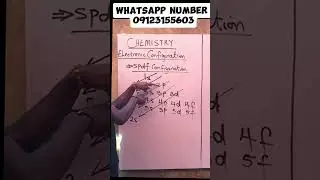 WHATSAPP NUMBER
09123155603
CHEMISTRY
Electronic Configuration
⇒ Spdf Configuration
1s
p
3p 3d
4s 4p 4d 4f
5s 5p 5d 5f
4f
5f